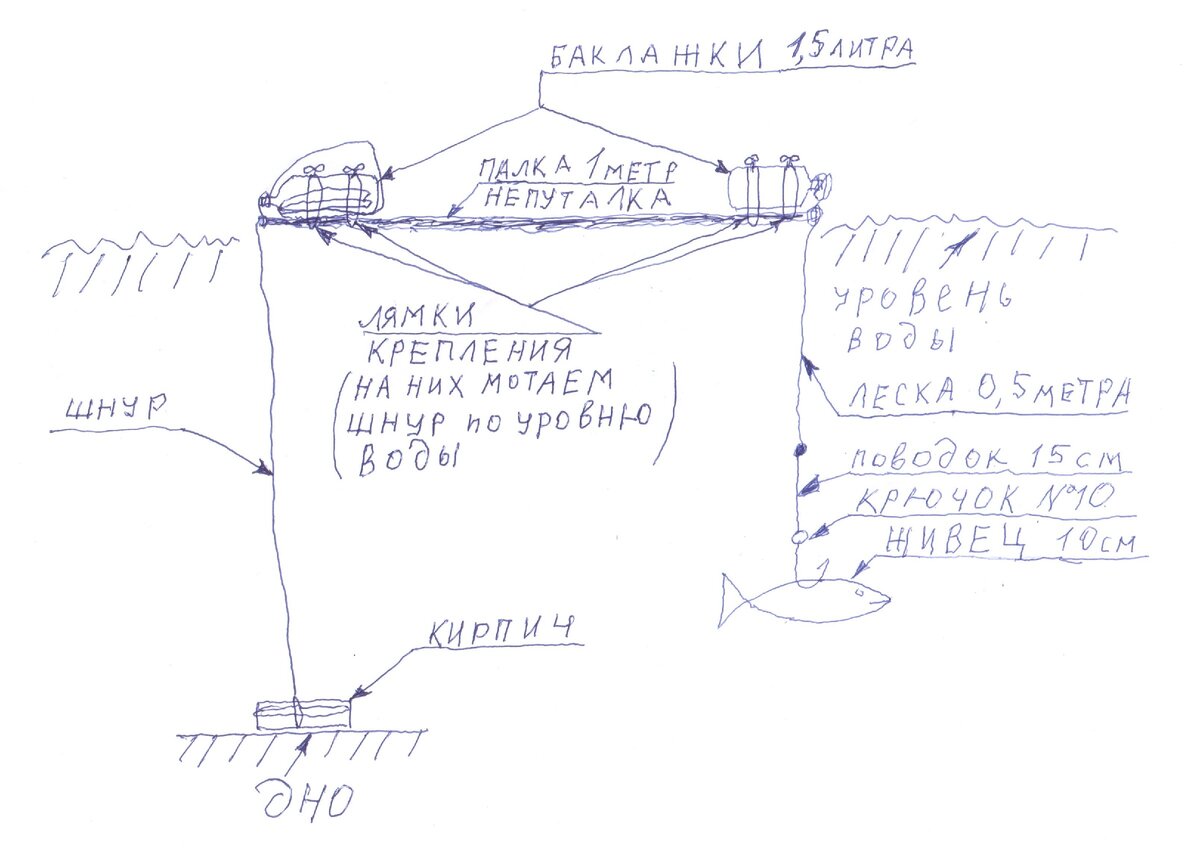 БАКЛАЖКИ 1,5 ЛИТРА
ПАЛКА 1 МЕТР
НЕПУТАЛКА
ЛЯМКИ
КРЕПЛЕНИЯ
(НА НИХ МОТАЕМ
ШНУР ПО УРОВНЮ
ВОДЫ)
УРОВЕНЬ
ВОДЫ
ШНУР
ЛЕСКА 0,5 МЕТРА
ПОВОДОК 15 см
КРЮЧОК №10
ЖИВЕЦ 10 см
КИРПИЧ
ДНО